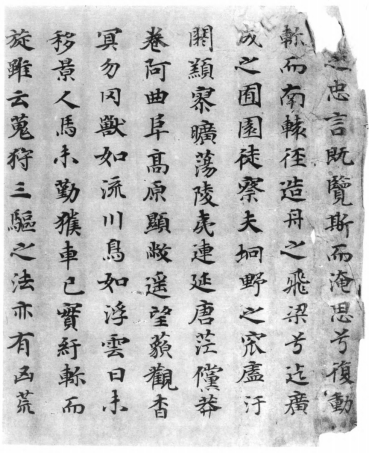 忠言既覽斯而淹思兮復動
軫而南轅徑造舟之飛梁兮迄廣
成之囿園徒察夫坰野之盧汙
開顯寮曠蕩陵夷連延唐茫儻莽
卷阿曲阜高原顯敞遥望藐觀杳
冥勿罔獸如流川鳥如浮雲日未
移景人馬未勤獵車已實紆軫而
旋雖云蒐狩三驅之法亦有凶荒